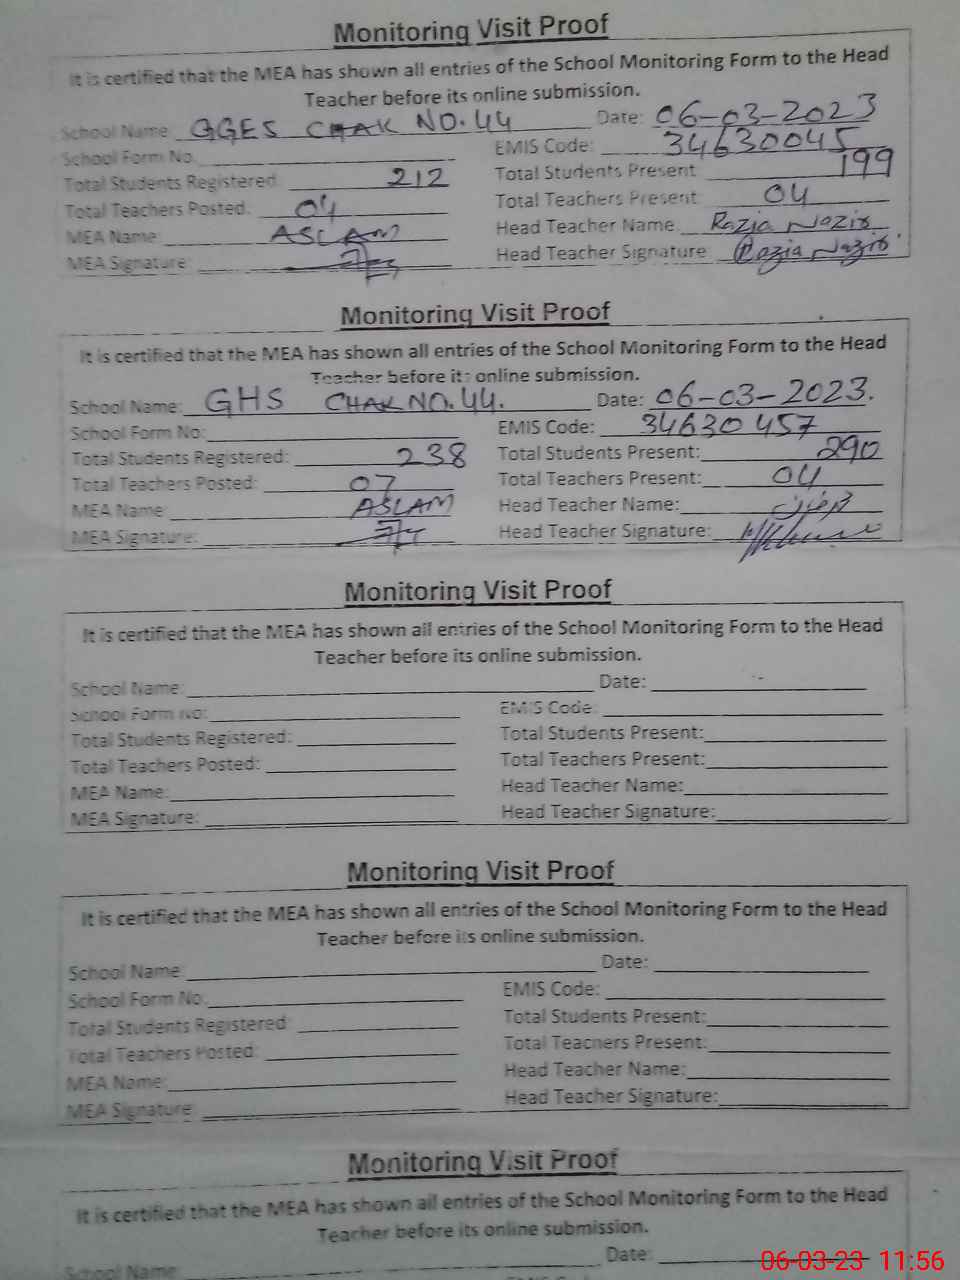 Monitoring Visit Proof
It is certified that the MEA has shown all entries of the School Monitoring Form to the Head
Teacher before its online submission.
School Name GGES CHAK NO.44 Date: 06-03-2023
School Form No. EMIS Code: 34630045
Total Students Registered 212 Total Students Present 199
Total Teachers Posted: 04 Total Teachers Present 04
MEA Name: ASLAM Head Teacher Name Razia Nazir
MEA Signature: Head Teacher Signature Razia Nazir
Monitoring Visit Proof
It is certified that the MEA has shown all entries of the School Monitoring Form to the Head
Teacher before its online submission.
School Name: GHS CHAK NO.44. Date: 06-03-2023.
School Form No: EMIS Code: 34630457
Total Students Registered: 238 Total Students Present: 290
Total Teachers Posted: 07 Total Teachers Present: 04
MEA Name: ASLAM Head Teacher Name:
MEA Signature: Head Teacher Signature:
Monitoring Visit Proof
It is certified that the MEA has shown all entries of the School Monitoring Form to the Head
Teacher before its online submission.
School Name: Date:
School Form No: EMIS Code:
Total Students Registered: Total Students Present:
Total Teachers Posted: Total Teachers Present:
MEA Name: Head Teacher Name:
MEA Signature: Head Teacher Signature:
Monitoring Visit Proof
It is certified that the MEA has shown all entries of the School Monitoring Form to the Head
Teacher before its online submission.
School Name: Date:
School Form No: EMIS Code:
Total Students Registered: Total Students Present:
Total Teachers Posted: Total Teachers Present:
MEA Name: Head Teacher Name:
MEA Signature Head Teacher Signature:
Monitoring Visit Proof
It is certified that the MEA has shown all entries of the School Monitoring Form to the Head
Teacher before its online submission.
School Name Date:
06-03-23 11:56